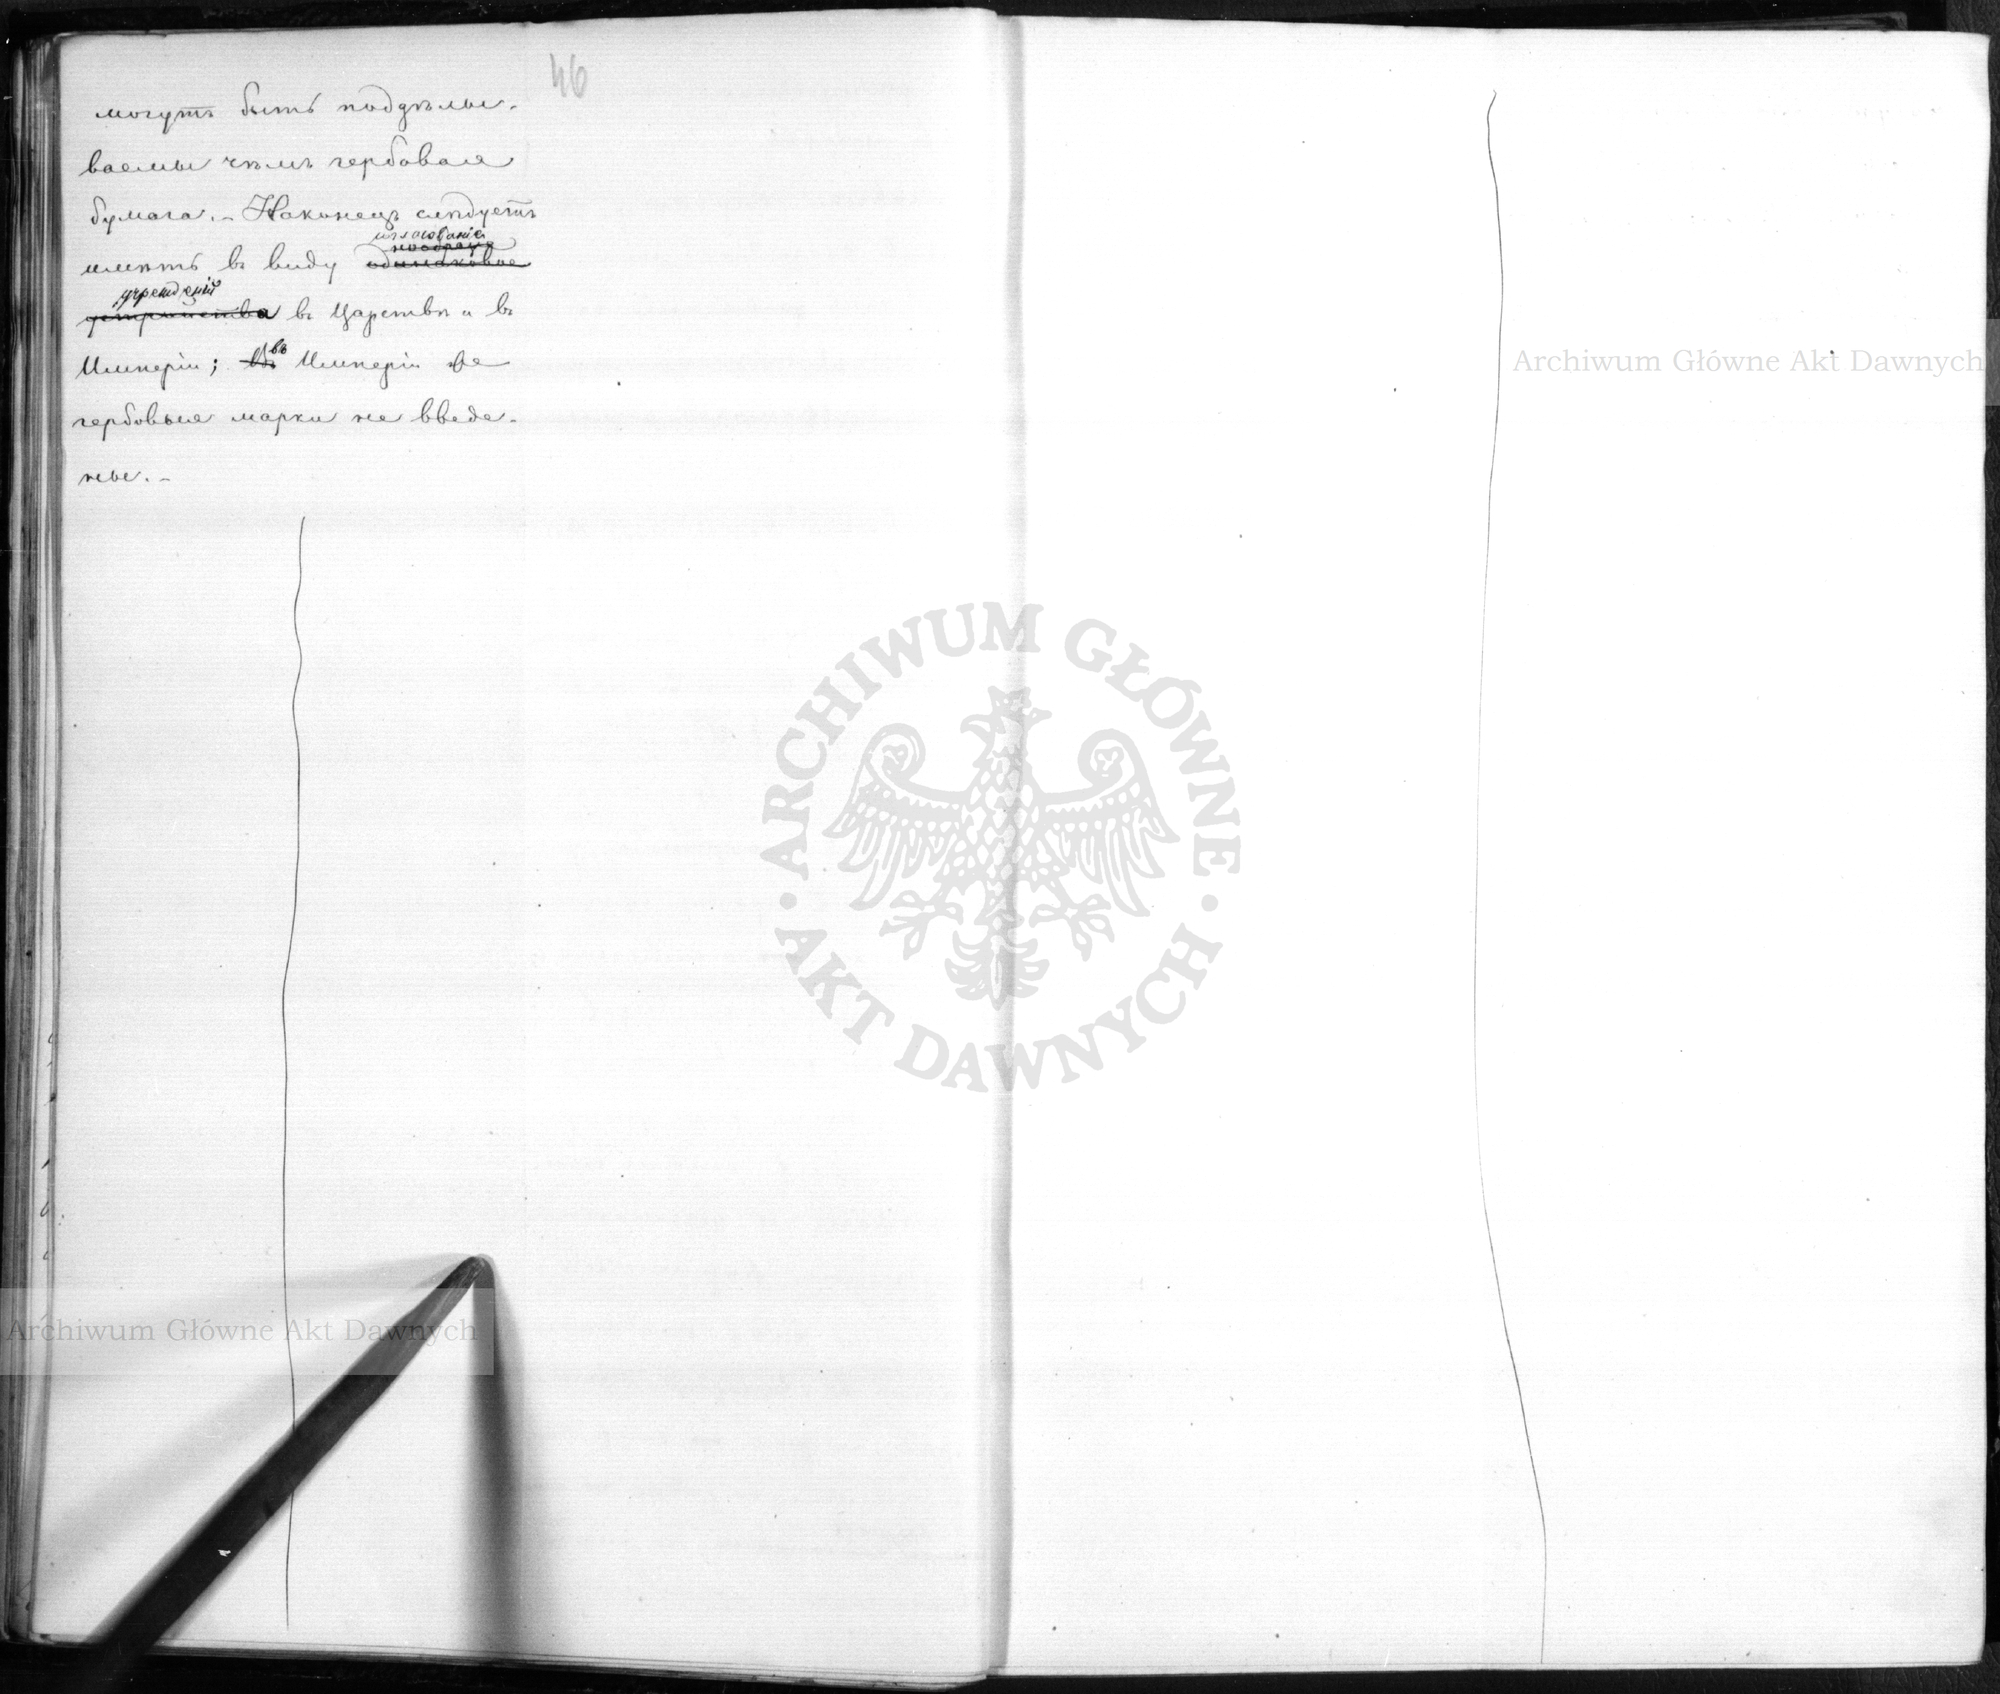 46
могутъ быть поддѣлы-
ваемы чѣмъ гербовая
бумага. - Наконецъ слѣдуетъ
согласованіе
имѣть въ виду одинаковое
учрежденій
устройства въ Царствѣ и въ
въ
Имперіи; Въ Имперіи же
гербовые марки не введе-
ны. -
Archiwum Główne Akt Dawnych
ARCHIWUM GŁÓWNE
AKT DAWNYCH
Archiwum Główne Akt Dawnych